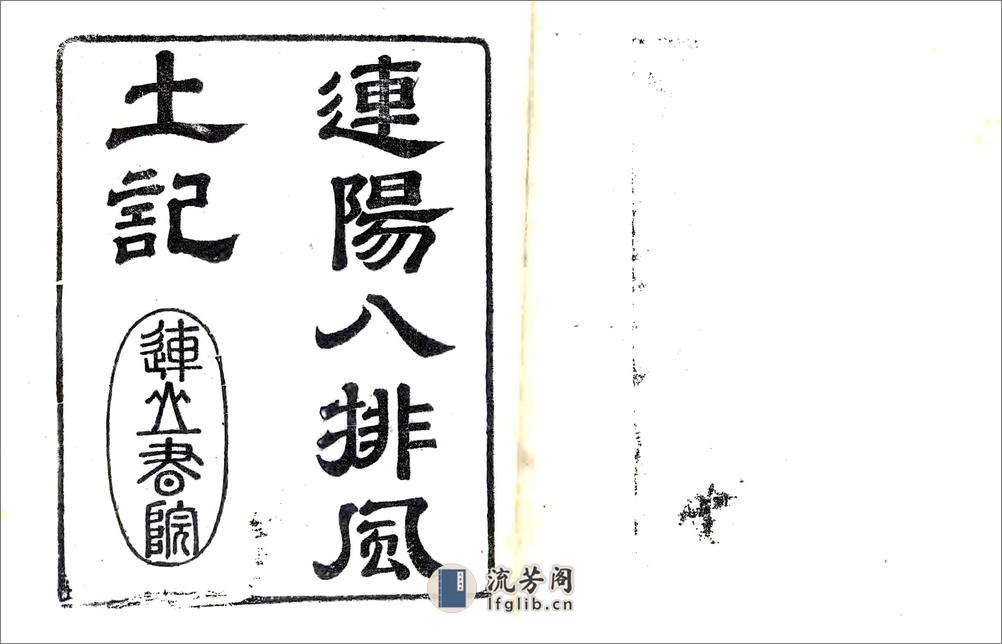 連陽八排風
土記
連山書院
流芳阁
lfglib.cn